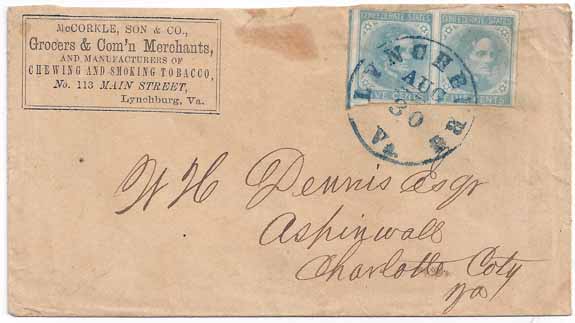 McCORKLE, SON & CO.,
Grocers & Com'n Merchants,
AND MANUFACTURERS OF
CHEWING AND SMOKING TOBACCO,
No. 113 MAIN STREET,
Lynchburg, Va.
CONFEDERATE STATES
CONFEDERATE STATES
FIVE CENTS
CENTS
LYNCHBURG
AUG
30
VA
W H Dennis Esqr
Aspinwall
Charlotte Coty
Va